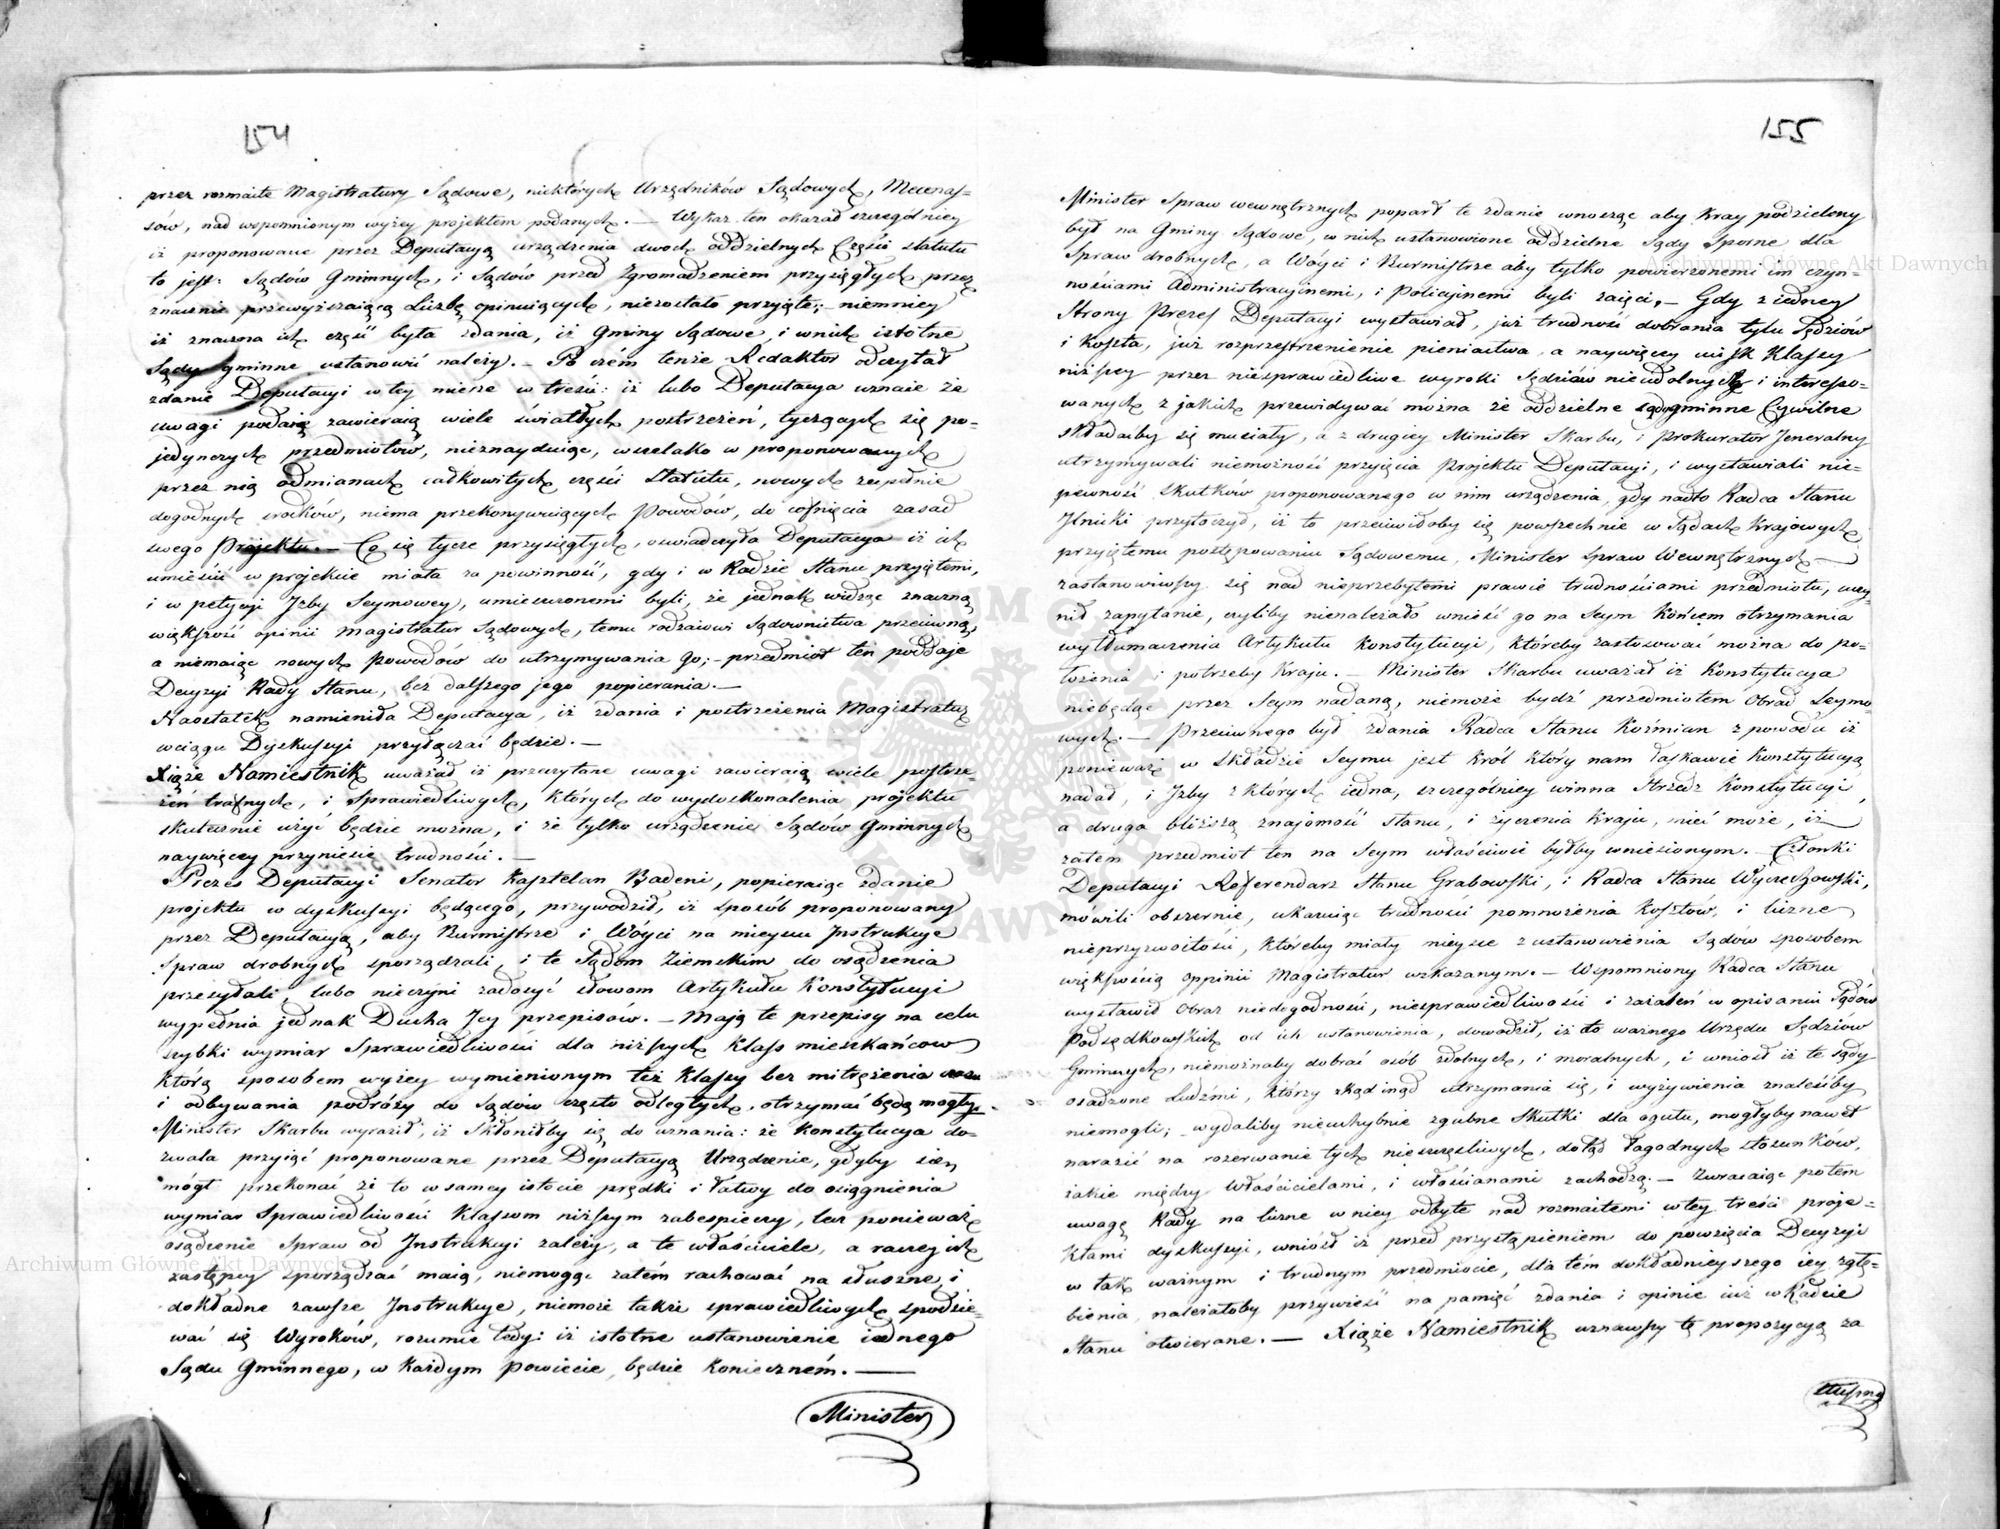 154
przez rozmaite Magistratury Sądowe, niektórych Urzędników Sądowych, Mecenas-
sów, nad wspomnionym wyżey projektem podanych. — Wykaz ten okazał szczególniey
iż proponowane przez Deputacyą urządzenia dwoch oddzielnych Części statutu
to jest: Sądów Gminnych, i Sądów przed Zgromadzeniem przysięgłych przez
znacznie przewyższaiącą Liczbę opiniuiących, niezostało przyięte; – niemniey
iż znaczna ich część była zdania, iż Gminy Sądowe, i wnich istotne
Sądy gminne ustanowić należy. – Po czém tenże Redaktor odczytał
zdanie Deputacyi w tey mierze w treści: iż lubo Deputacya uznaie że
uwagi podane zawieraią wiele światłych postrzeżeń, tyczących się po-
jedynczych przedmiotów, nieznayduiąc, wszelako w proponowanych
przez nią odmianach całkowitych części Statutu, nowych zupełnie
dogodnych srodków, niema przekonywaiących Powodów, do cofnięcia zasad
swego Projektu. — Co się tycze przysięgłych, oswiadczyła Deputacya iż ich
umieścić w projekcie miała za powinność, gdy i w Radzie Stanu przyiętemi,
i w petycyi Izby Seymowey, umieszczonemi byli, że jednak widząc znaczną
większość opinii Magistratur Sądowych, temu rodzaiowi Sądownictwa przeciwną,
a niemaiąc nowych Powodów do utrzymywania go; – przedmiot ten poddaje
Decyzyi Rady Stanu, bez dalszego jego popierania. —
Naostatek namieniła Deputacya, iż zdania i postrzeżenia Magistratur
wciągu Dyskussyi przyłączać będzie. —
Xiąże Namiestnik uważał iż przeczytane uwagi zawieraią wiele postrze-
żeń trafnych, i Sprawiedliwych, których do wydoskonalenia projektu
skutecznie użyć będzie można, i że tylko urządzenie Sądów Gminnych
naywięcey przyniesie trudności. —
Prezes Deputacyi Senator Kasztelan Badeni, popieraiąc zdanie
projektu w dyskussyi będącego, przywodził, iż sposób proponowany
przez Deputacyą, aby Burmistrze i Woyci na mieyscu Instrukcye
Spraw drobnych sporządzali, i te Sądom Ziemskim do osądzenia
przesyłali, lubo nieczyni zadosyć słowom Artykułu Konstytucyi
wypełnia jednak Ducha Jey przepisów. — Mają te przepisy na celu
szybki wymiar Sprawiedliwości dla niższych Klass mieszkańców
którą sposobem wyżey wymienionym też Klassy bez mitrężenia czasu
i odbywania podróży do Sądów często odległych, otrzymać będą mogły.
Minister Skarbu wyraził, iż skłoniłby się do uznania: że Konstytucya do-
zwala przyiąć proponowane przez Deputacyą Urządzenie, gdyby się
mógł przekonać że to w samey istocie prędki i łatwy do osiągnienia
wymiar Sprawiedliwości Klassom niższym zabespieczy, lecz ponieważ
osądzenie Spraw od Instrukcyi zależy, a te właściciele, a raczey ich
zastępcy sporządzać maią, niemogąc zatém rachować na słuszne, i
dokładne zawsze Instrukcye, niemoże także sprawiedliwych spodzie-
wać się Wyroków, rozumie tedy: iż istotne ustanowienie iednego
Sądu Gminnego, w Każdym Powiecie, będzie Konieczném. —
Minister
155
Minister Spraw wewnętrznych poparł te zdanie wnosząc aby Kray podzielony
był na Gminy Sądowe, w nich ustanowione oddzielne Sądy Sporne dla
Spraw drobnych, a Wóyci i Burmistrze aby tylko powierzonemi im czyn-
nościami Administracyinemi, i Policyinemi byli zaięci. — Gdy z iedney
Strony Prezes Deputacyi wystawiał, już trudność dobrania tylu Sędziów
i Koszta, już rozprzestrzenienie pieniactwa, a naywięcey ucisk Klassy
niższey przez niesprawiedliwe wyroki Sędziów nieudolnych i interesso-
wanych z jakich przewidywać można że oddzielne sądy gminne Cywilne
składaćby się musiały, a z drugiey Minister Skarbu, i Prokurator Jeneralny
utrzymywali niemożność przyięcia Projektu Deputacyi, i wystawiali nie-
pewność skutków proponowanego w nim urządzenia, gdy nadto Radca Stanu
Ilnicki przytoczył, iż to przeciwiłoby się powszechnie w Sądach Kraiowych
przyiętemu postępowaniu Sądowemu, Minister Spraw Wewnętrznych —
zastanowiwszy się nad nieprzebytemi prawie trudnościami przedmiotu, uczy-
nił zapytanie, czyliby nienależało wnieść go na Seym Końcem otrzymania
wytłumaczenia Artykułu Konstytucyi, któreby zastosować można do po-
łożenia i potrzeby Kraju. — Minister Skarbu uważał iż Konstytucya
niebędąc przez Seym nadaną, niemoże bydź przedmiotem Obrad Seymo-
wych. — Przeciwnego był zdania Radca Stanu Koźmian z powodu iż
ponieważ w składzie Seymu jest Król który nam łaskawie Konstytucyą
nadał, i Izby z których iedna, szczególniey winna strzedz Konstytucyi,
a druga bliższą znajomość stanu, i życzenia Kraju, mieć może, iż
zatem przedmiot ten na Seym właściwie byłby wniesionym. — Członki
Deputacyi Referendarz Stanu Grabowski, i Radca Stanu Wyczechowski,
mówili obszernie, ukazuiąc trudności pomnożenia Kosztów, i liczne
nieprzyzwoitości, któreby miały mieysce z ustanowienia Sądów sposobem
większością oppinii Magistratur wskazanym. — Wspomniony Radca Stanu
wystawił Obraz niedogodności, niesprawiedliwości i zażaleń w opisaniu Sądów
Podsędkowskich od ich ustanowienia, dowodził, iż do ważnego Urzędu Sędziów
Gminnych, niemożnaby dobrać osób zdolnych, i moralnych, i wniósł iż te sądy
osadzone Ludźmi, którzy zkądinąd utrzymania się, i wyżywienia znaleśćby
niemogli; – wydaliby nieuchybnie zgubne Skutki dla ogułu, mogłyby nawet
narazić na rozerwanie tych nieszczęśliwych, dotąd łagodnych stosunków,
jakie między Właścicielami, i włościanami zachodzą. — Zwracaiąc potem
uwagę Rady na liczne w niey odbyte nad rozmaitemi w tey treści proje-
ktami dyskussyi, wniósł iż przed przystąpieniem do powzięcia Decyzyi
w tak ważnym i trudnym przedmiocie, dla tém dokładnieyszego iey zgłę-
bienia, należałoby przywieść na pamięć zdania i opinie już w Radzie
Stanu otwierane. — Xiąże Namiestnik uznawszy tę propozycyą za